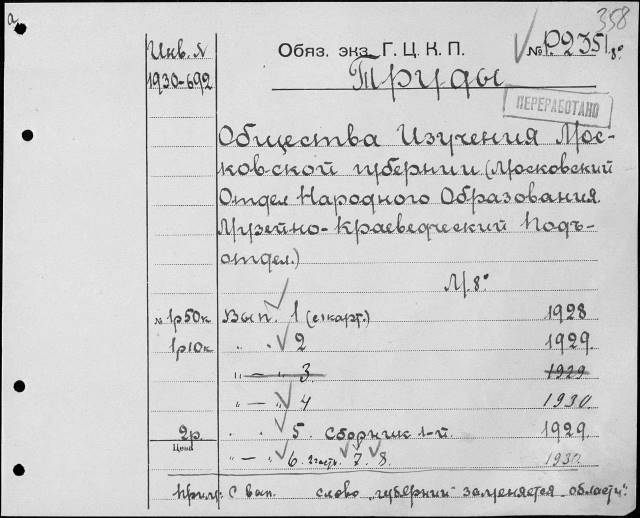 а
358
Инв. №
1930-692
Обяз. экз. Г.Ц.К.П.
№ Р2351/8°
Труды
ПЕРЕРАБОТАНО
Общества Изучения Мос-
ковской губернии (Московский
Отдел Народного Образования.
Музейно-Краеведческий Подъ-
отдел.)
М. 8°
1р50к Вып. 1 (с карт.) 1928
1р10к " . 2 1929.
" — " 3. 1929
" — " 4 1930.
2р. " . 5. Сборник 1-й. 1929.
Цена
" — " 6. 2 части. 7. 8. 1930.
Прим: С вып. слово "губернии" заменяется "области".